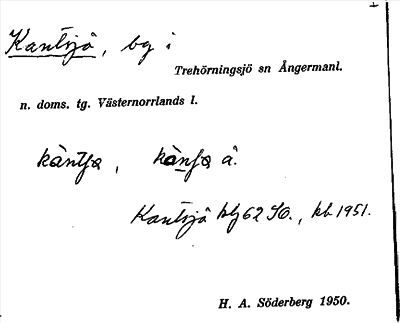 Kantsjö, by i
Trehörningsjö sn Ångermanl.
n. doms. tg. Västernorrlands l.
å.
Kantsjö blj 62 SO., kb 1951.
H. A. Söderberg 1950.